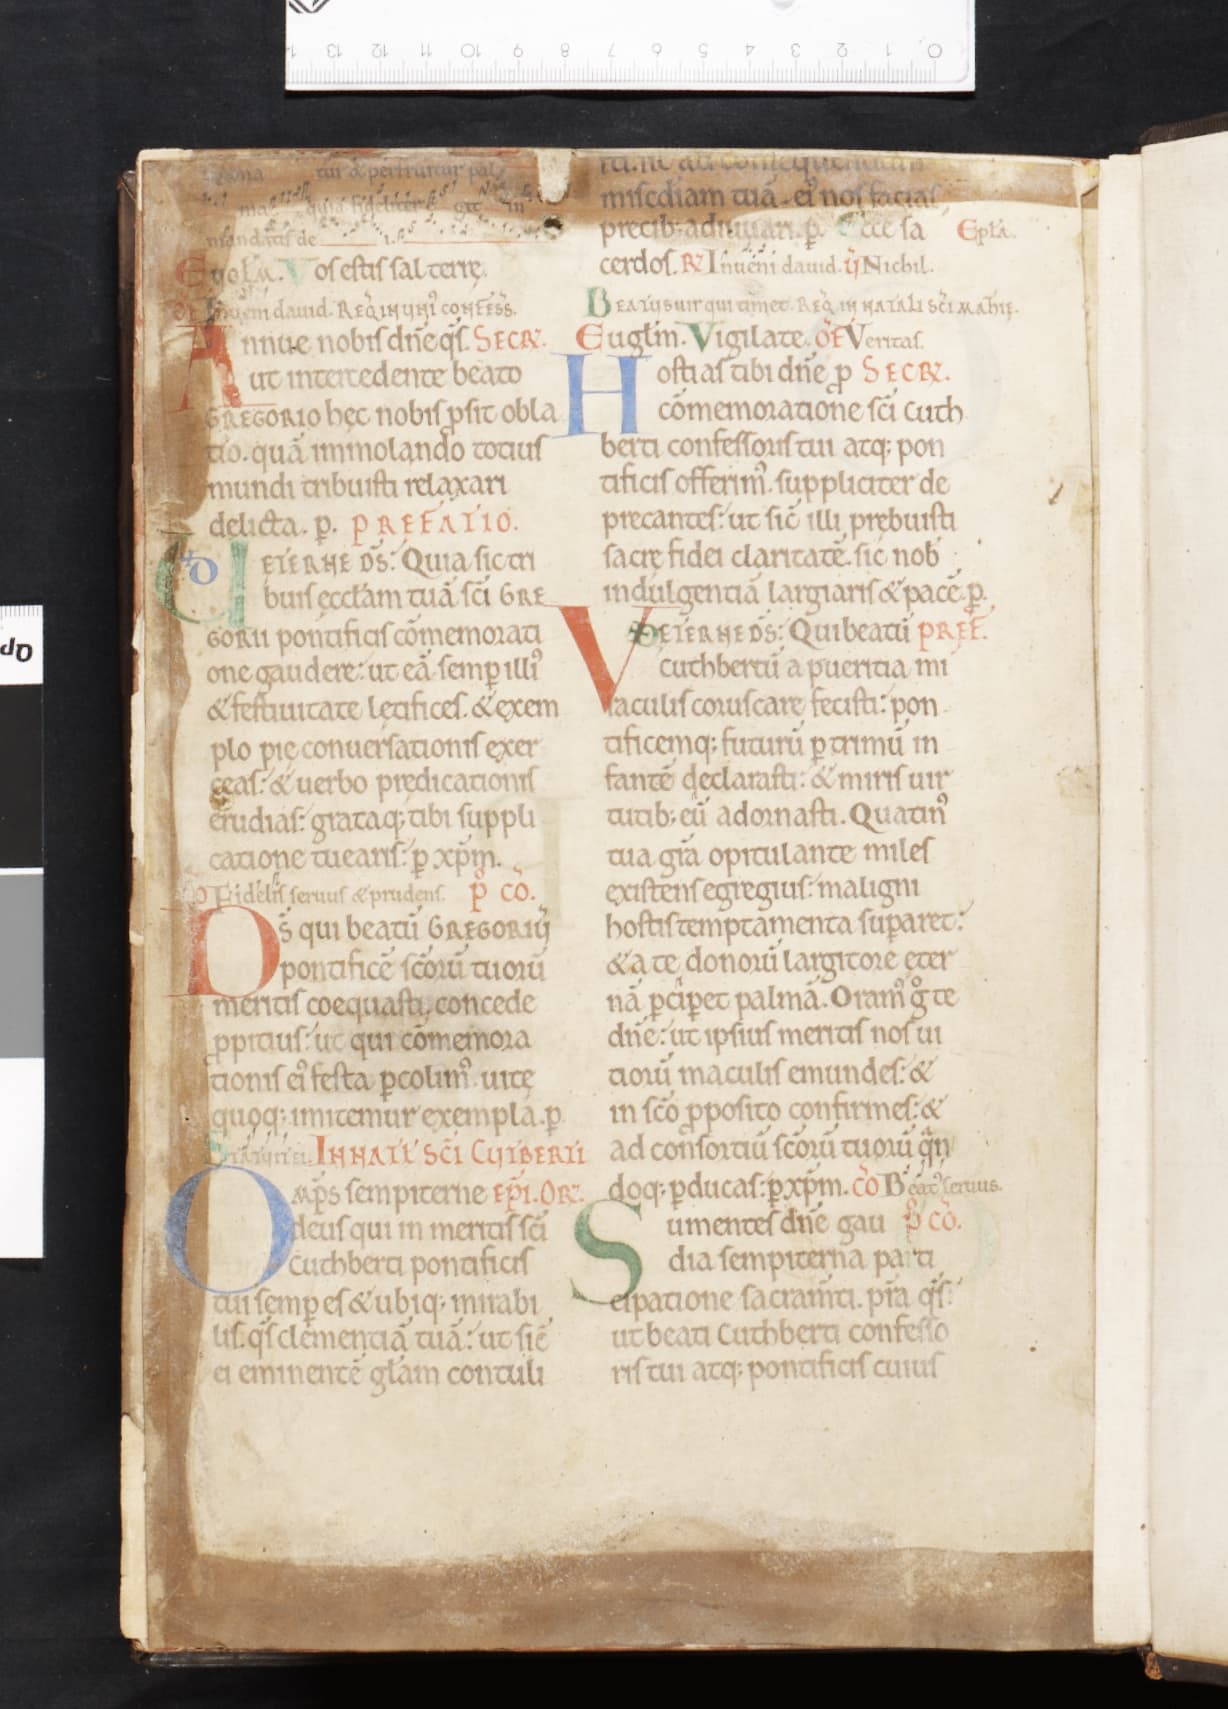 tur & perfruitur pal
ma quia fideliter in
mandatis de
Eugłm. Vos estis sal terrę.
Inueni dauid. Reꝗ̃ in uni᷒ confess̃.
Annue nobis dñe q̃s. SECR̃.
ut intercedente beato
GREGORIO hęc nobis ꝓsit obla
tio. quã immolando totius
mundi tribuisti relaxari
delicta. ꝑ. PREFATIO.
ETERNE DS̃: Quia sic tri
buis ęccłam tuã sc̃i GRE
GORII pontificis cõmemorati
one gaudere: ut eã semꝑ illi᷒
& festiuitate lętifices. & exem
plo pię conuersationis exer
ceas: & uerbo prędicationis
erudias: grataq; tibi suppli
catione tuearis: ꝑ xp̃m.
Fidelis seruus & prudens. p̃ cõ.
Ds̃ qui beatũ GREGORIŨ
pontificẽ sc̃orũ tuorũ
meritis coequasti. concede
ꝓpitius: ut qui cõmemora
tionis ei᷒ festa ꝑcolim᷒. uitę
quoq; imitemur exempla. ꝑ
IN NATĨ SC̃I CUTBERTI
Omp̃s sempiterne EP̃I. OR̃.
deus qui in meritis sc̃i
Cuthberti pontificis
tui semꝑ es & ubiq; mirabi
lis. q̃s clementiã tuã: ut sic̃
ei eminentẽ głam contuli
sti. sic ad consequendam
misc̃diam tuã. ei᷒ nos facias
precib; adiuuari. ꝑ. Ecce sa Epłа.
cerdos. R̃ Inueni dauid. ỹ Nichil.
BEATUS uir qui timet. Reꝗ̃ in natali sc̃i mathię.
Euglm̃. Vigilate. of̃ Veritas.
Hostias tibi dñe ꝓ SECR̃.
cõmemoratione sc̃i Cuth
berti confessoris tui atq; pon
tificis offerim᷒. suppliciter de
precantes: ut sic̃ illi prębuisti
sacrę fidei claritatẽ. sic nob̃
indulgentiã largiaris & pacẽ. ꝑ.
V ETERNE DS̃: Qui beatũ PREF̃.
cuthbertũ a pueritia mi
raculis coruscare fecisti: pon
tificemq; futurũ ꝑ trimũ in
fantẽ declarasti: & miris uir
tutib; eũ adornasti. Quatin᷒
tua gr̃a opitulante miles
existens egregius: maligni
hostis temptamenta suꝑaret:
& a te donorũ largitore eter
nã ꝑciꝑet palmã. Oram᷒ g̊ te
dñe: ut ipsius meritis nos ui
tiorũ maculis emundes: &
in sc̃o ꝓposito confirmes: &
ad consortiũ sc̃orũ tuorũ q̃n
doq; ꝑducas: ꝑ xp̃m. cõ Beat᷒ seruus.
Sumentes dñe gau p̃ cõ.
dia sempiterna parti
cipatione sacram̃ti. pr̃a q̃s:
ut beati Cuthberti confesso
ris tui atq; pontificis cuius